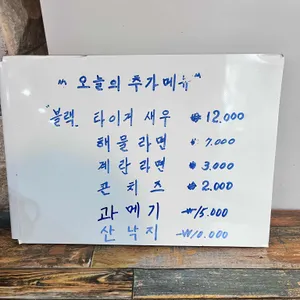 "오늘의 추가메뉴"
블랙 타이거 새우 ₩ 12.000
해물라면 ₩ 7.000
계란라면 ₩ 3.000
콘치즈 ₩ 2.000
과메기 ₩15.000
산낙지 ₩10.000